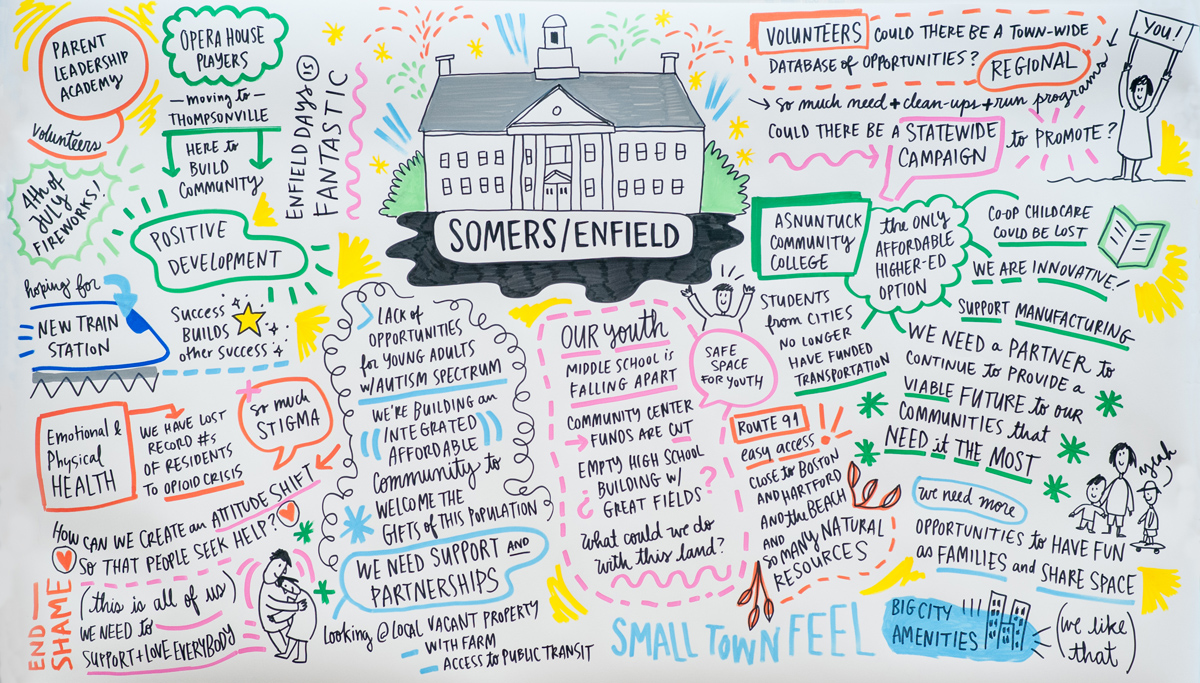 PARENT
LEADERSHIP
ACADEMY
Volunteers
OPERA HOUSE
PLAYERS
— moving to —
THOMPSONVILLE
HERE to
BUILD
COMMUNITY
ENFIELD DAYS IS
FANTASTIC
4th of
JULY
FIREWORKS!
POSITIVE
DEVELOPMENT
hoping for
NEW TRAIN
STATION
Success
BUILDS
other success
SOMERS/ENFIELD
VOLUNTEERS COULD THERE BE A TOWN-WIDE
DATABASE of OPPORTUNITIES? REGIONAL
→ so much need + clean-ups + run programs
COULD THERE BE A STATEWIDE
CAMPAIGN
to PROMOTE?
YOU!
ASNUNTUCK
COMMUNITY
COLLEGE
the ONLY
AFFORDABLE
HIGHER-ED
OPTION
CO-OP CHILDCARE
COULD BE LOST
WE ARE INNOVATIVE!
SUPPORT MANUFACTURING
STUDENTS
from CITIES
NO LONGER
HAVE FUNDED
TRANSPORTATION
WE NEED a PARTNER to
CONTINUE to PROVIDE a
VIABLE FUTURE to OUR
COMMUNITIES that
NEED it THE MOST
Emotional &
Physical
HEALTH
WE HAVE LOST
RECORD #s
OF RESIDENTS
TO OPIOID CRISIS
so much
STIGMA
HOW CAN WE CREATE an ATTITUDE SHIFT
SO THAT PEOPLE SEEK HELP?
END
SHAME
(this is all of us)
WE NEED to
SUPPORT + LOVE EVERYBODY
LACK of
OPPORTUNITIES
for YOUNG ADULTS
W/AUTISM SPECTRUM
WE'RE BUILDING an
INTEGRATED
AFFORDABLE
COMMUNITY to
WELCOME THE
GIFTS of THIS POPULATION
WE NEED SUPPORT AND
PARTNERSHIPS
Looking @ LOCAL VACANT PROPERTY
- WITH FARM
- ACCESS to PUBLIC TRANSIT
OUR YOUTH
MIDDLE SCHOOL IS
FALLING APART
COMMUNITY CENTER
→ FUNDS ARE CUT
EMPTY HIGH SCHOOL
BUILDING W/
¿ GREAT FIELDS?
What could we do
with this land?
SAFE
SPACE
FOR YOUTH
ROUTE 91
easy access!
CLOSE to BOSTON
AND HARTFORD
AND the BEACH
AND
SO MANY NATURAL
RESOURCES
we need more
OPPORTUNITIES to HAVE FUN
as FAMILIES and SHARE SPACE
yeah
SMALL TOWN FEEL
BIG CITY
AMENITIES
(we like
that)